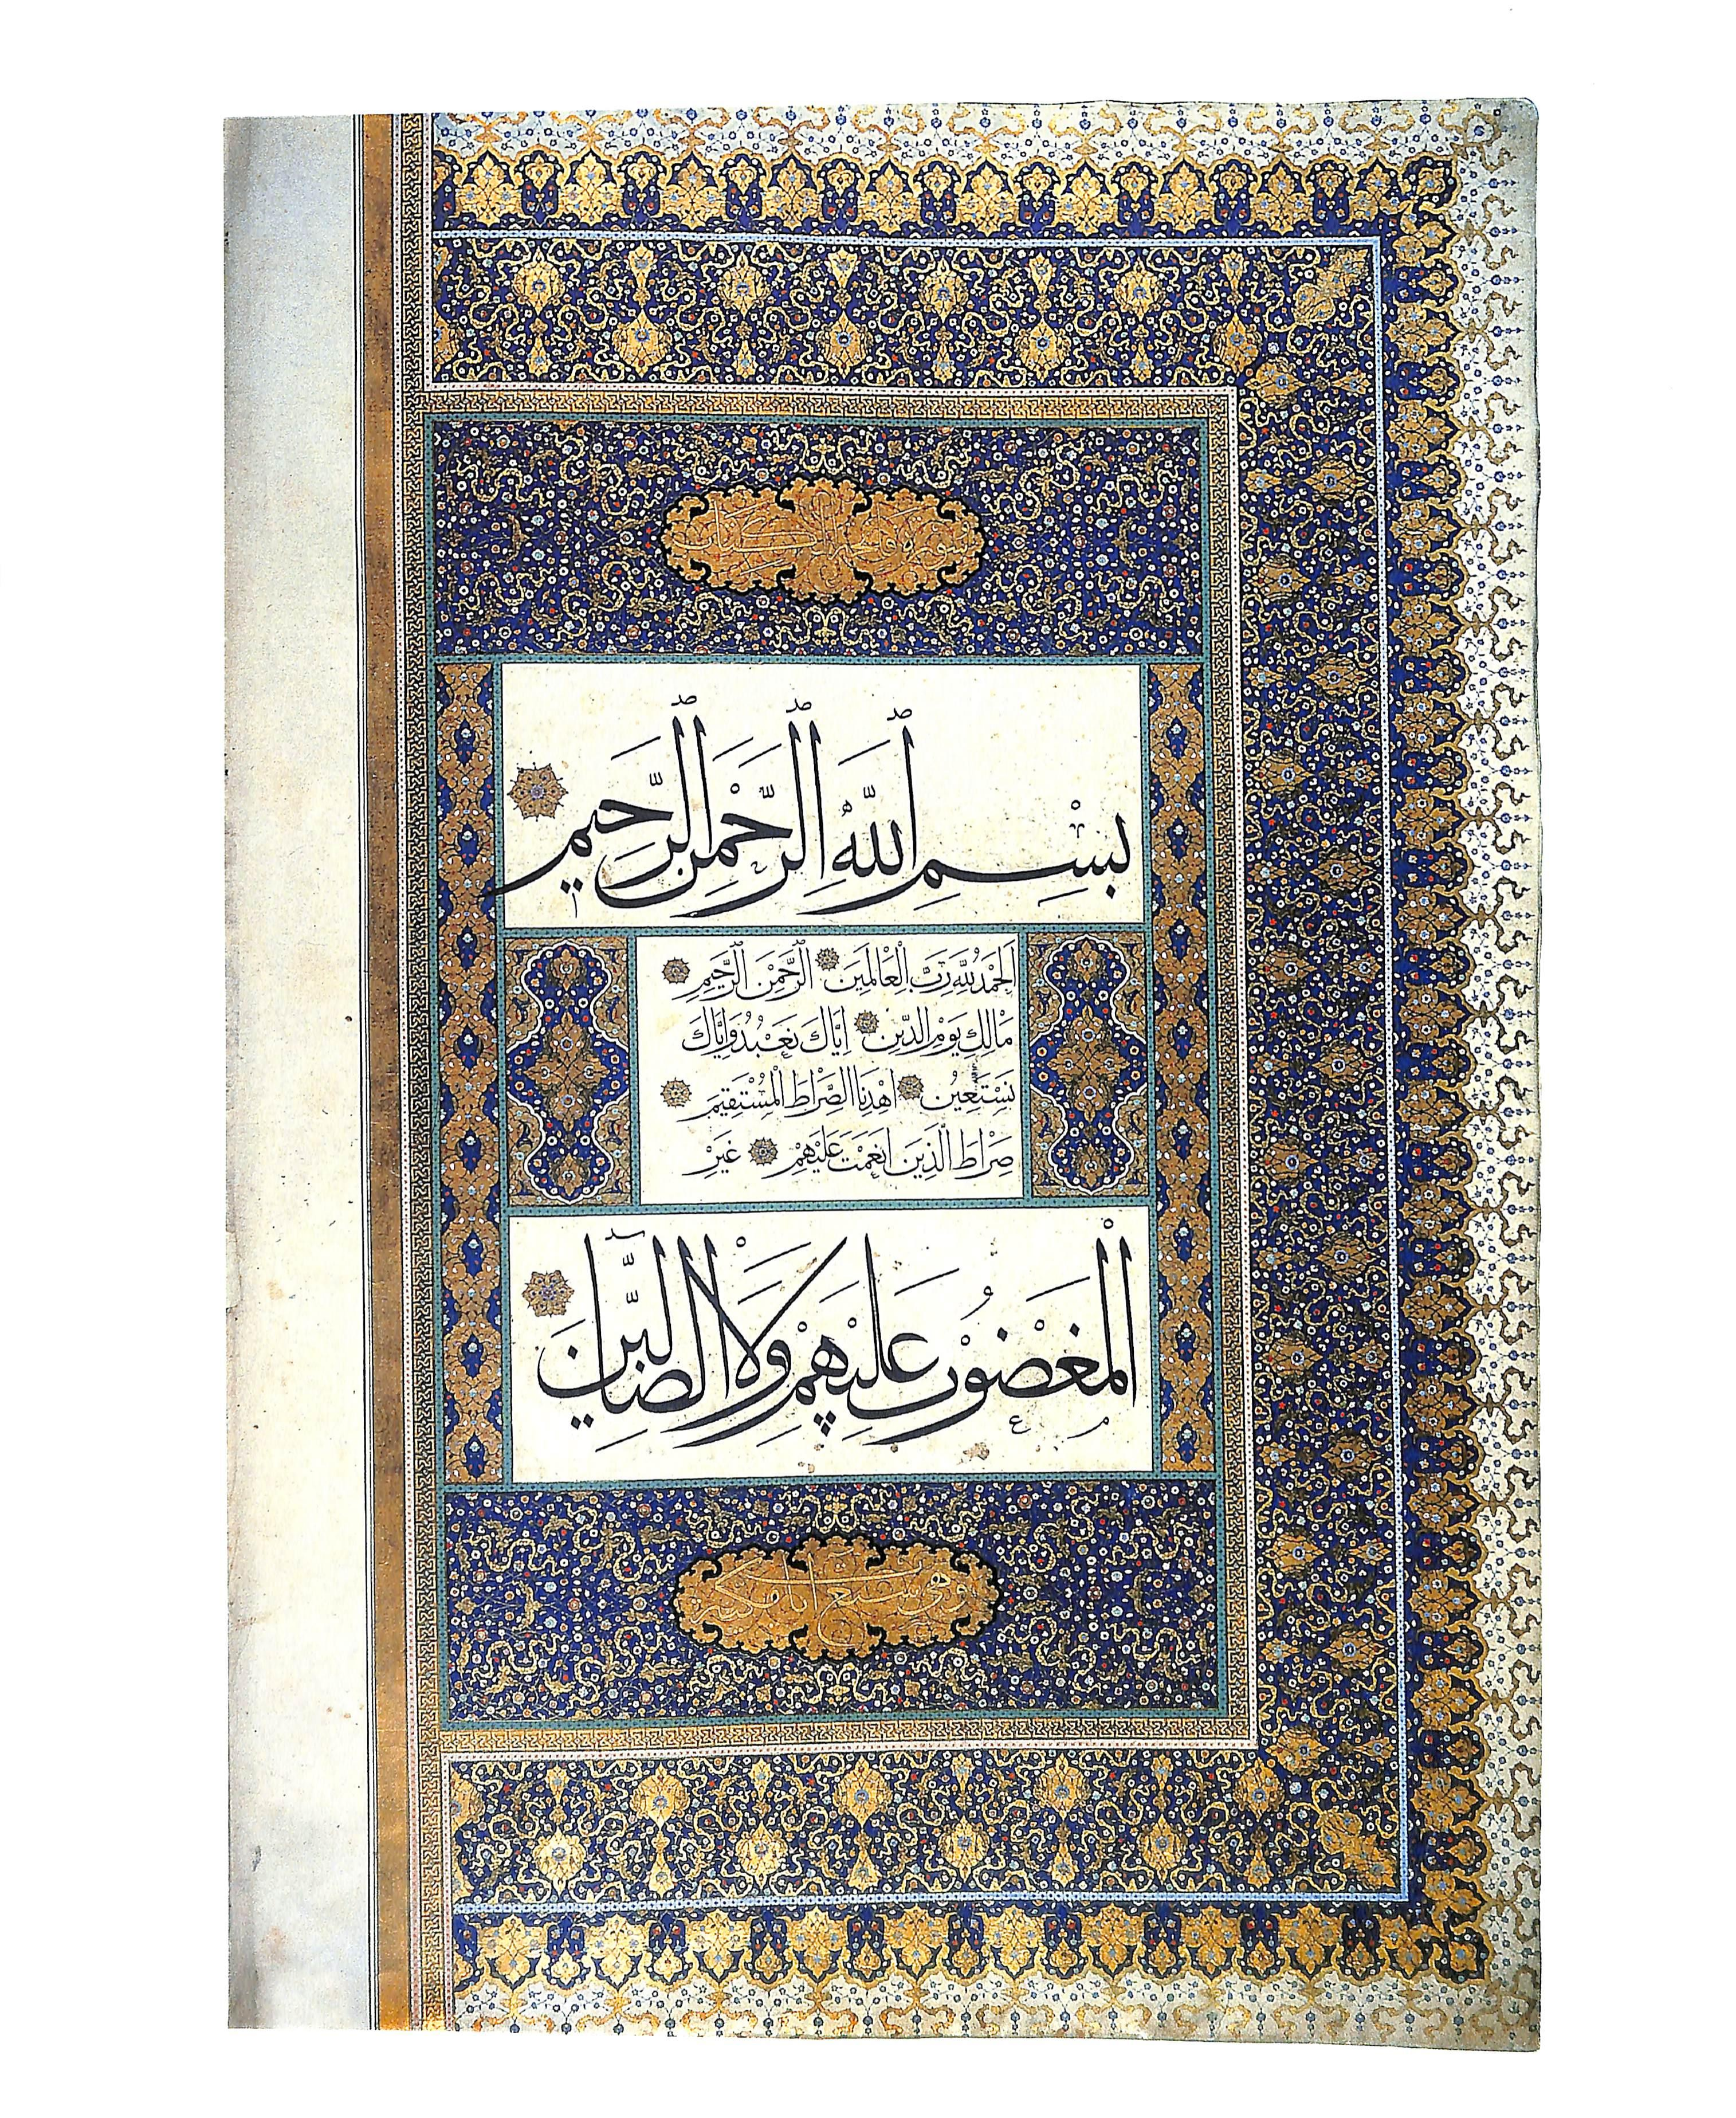 سورة فاتحة الكتاب
بِسْمِ ٱللَّهِ ٱلرَّحْمٰنِ ٱلرَّحِيمِ
اَلْحَمْدُ لِلَّهِ رَبِّ الْعَالَمِينَ ٱلرَّحْمٰنِ ٱلرَّحِيمِ
مَالِكِ يَوْمِ الدِّينِ اِيَّاكَ نَعْبُدُ وَاِيَّاكَ
نَسْتَعِينُ اهْدِنَا الصِّرَاطَ الْمُسْتَقِيمَ
صِرَاطَ الَّذِينَ اَنْعَمْتَ عَلَيْهِمْ غَيْرِ
الْمَغْضُوبِ عَلَيْهِمْ وَلَا الضَّالِّينَ
وهي سبع آيات مكية